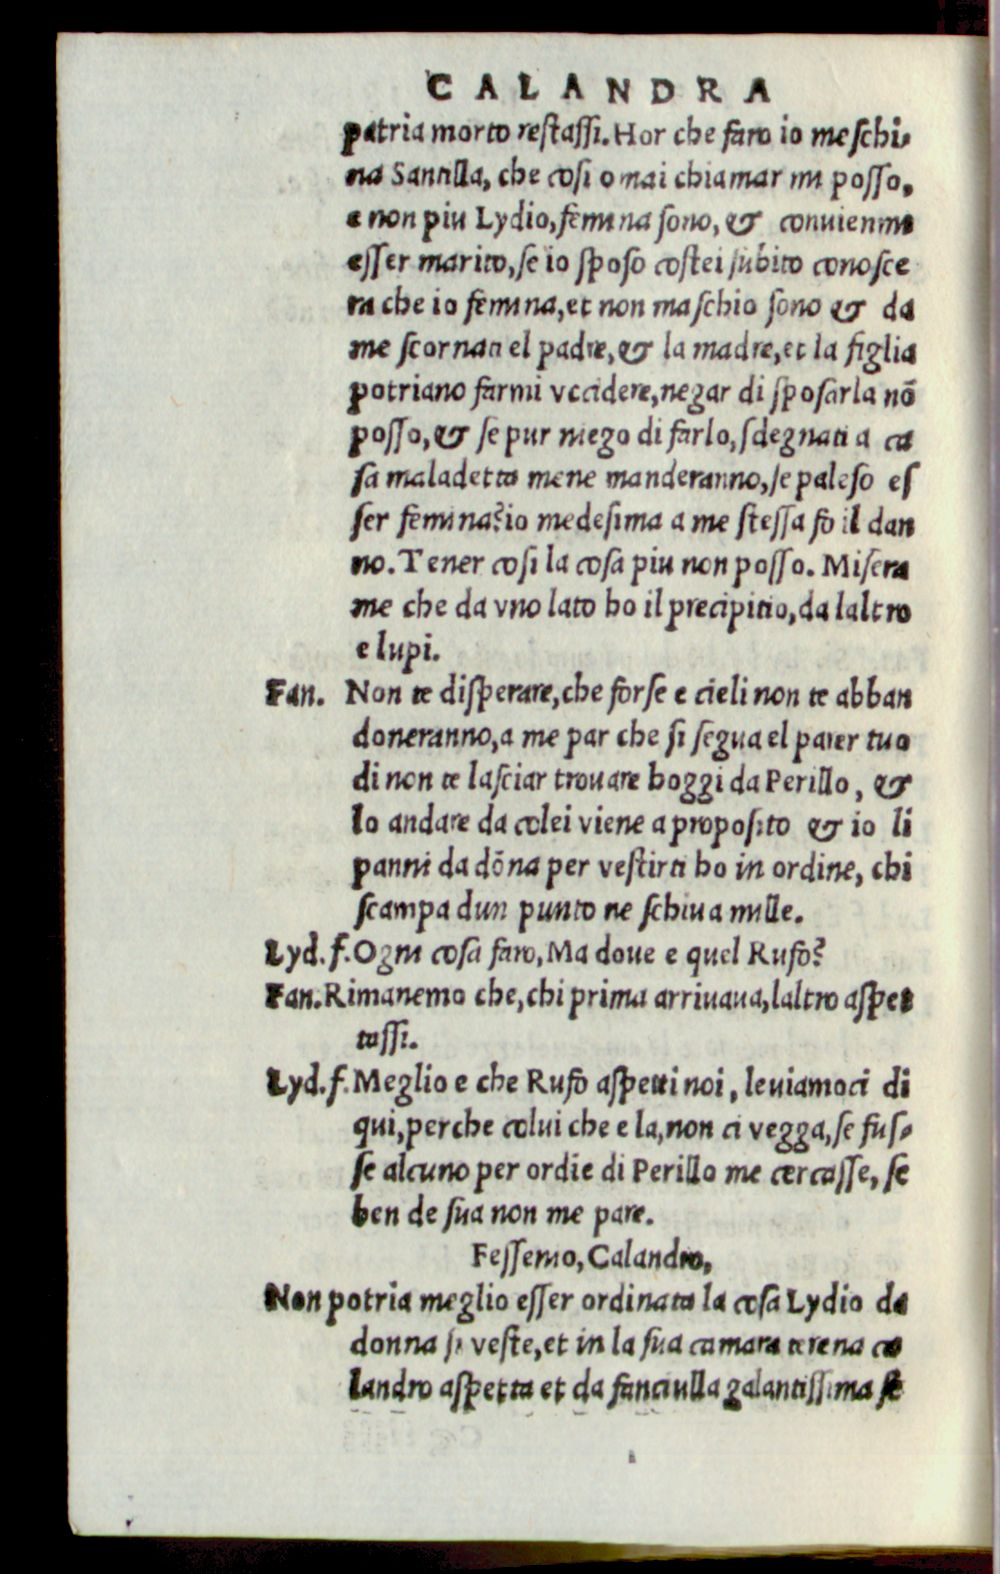 CALANDRA
patria morto restassi. Hor che faro io meschi-
na Santilla, che cosi omai chiamar mi posso,
e non piu Lydio, femina sono, & conuienmi
esser marito, se io sposo costei subito conosce
ra che io femina, et non maschio sono & da
me scornati el padre, & la madre, et la figlia
potriano farmi vccidere, negar di sposarla nõ
posso, & se pur niego di farlo, sdegnati a ca
sa maladetta mene manderanno, se paleso es
ser femina? io medesima a me stessa fo il dan
no. Tener cosi la cosa piu non posso. Misera
me che da vno lato ho il precipitio, da laltro
e lupi.
Fan. Non te disperare, che forse e cieli non te abban
doneranno, a me par che si segua el parer tuo
di non te lasciar trouare hoggi da Perillo, &
lo andare da colei viene a proposito & io li
panni da dõna per vestirti ho in ordine, chi
scampa dun punto ne schiua mille.
Lyd. f. Ogni cosa faro, Ma doue e quel Rufo?
Fan. Rimanemo che, chi prima arriuaua, laltro aspet
tassi.
Lyd. f. Meglio e che Rufo aspetti noi, leuiamoci di
qui, perche colui che e la, non ci vegga, se fus-
se alcuno per ordie di Perillo me cercasse, se
ben de sua non me pare.
Fessemo, Calandro,
Non potria meglio esser ordinata la cosa Lydio da
donna si veste, et in la sua camara terena ca
landro aspetta et da fanciulla galantissima se